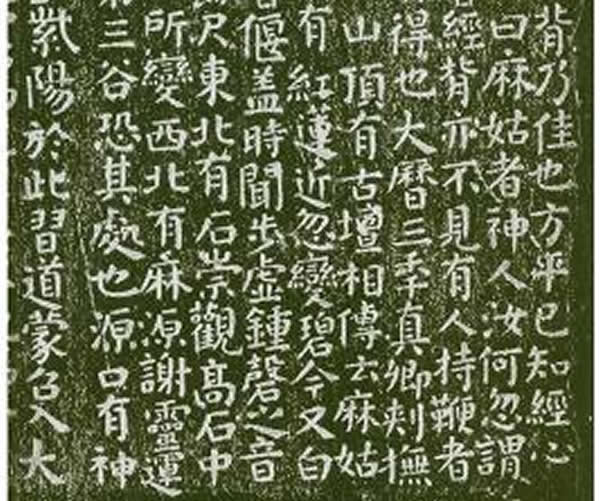 背乃佳也方平已知經心
曰麻姑者神人汝何忽謂
經背亦不見有人持鞭者
得也大曆三秊真卿刾撫
山頂有古壇相傳云麻姑
有紅蓮近忽變碧今又白
偃盖時聞步虛鍾磬之音
尺東北有石崇觀高石中
所變西北有麻源謝靈運
三谷恐其處也源口有神
紫陽於此習道蒙召入大